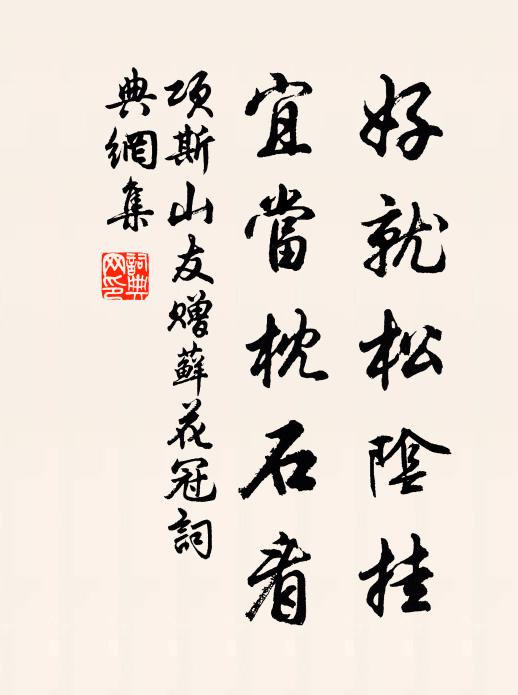 好就松陰挂
宜當枕石看
項斯山友贈蘚花冠詞
典網集
詞典网印